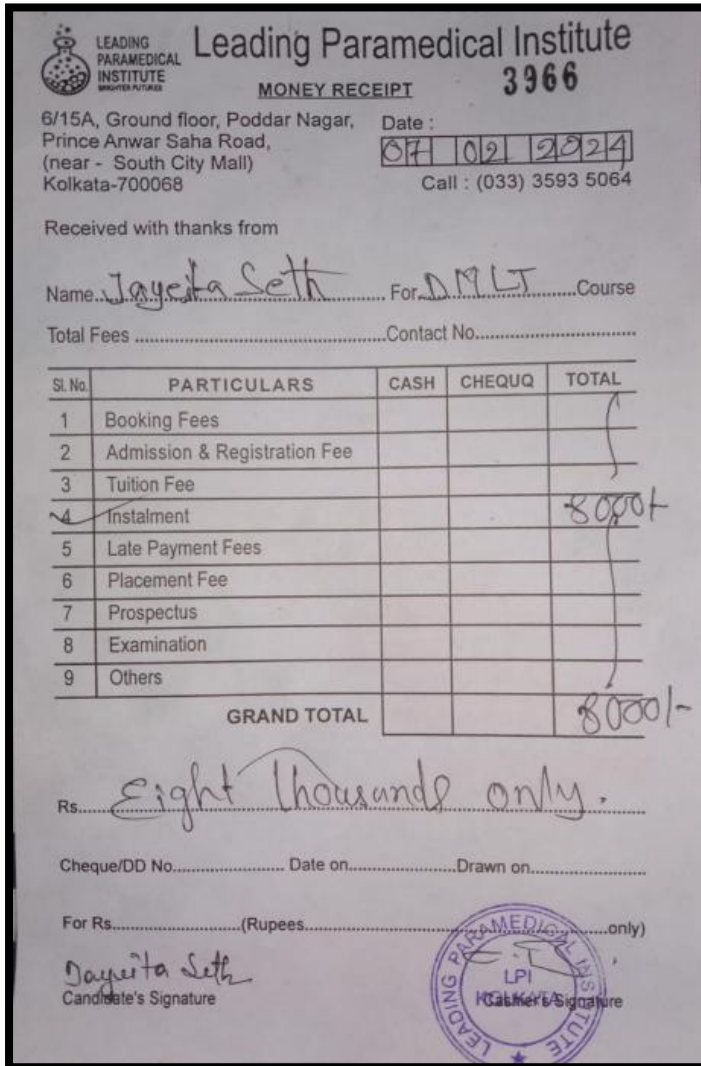 LEADING
PARAMEDICAL
INSTITUTE
BRIGHTER FUTURES
Leading Paramedical Institute
MONEY RECEIPT
3966
6/15A, Ground floor, Poddar Nagar,
Prince Anwar Saha Road,
(near - South City Mall)
Kolkata-700068
Date :
07 02 2024
Call : (033) 3593 5064
Received with thanks from
Name..Jayeita Seth.......... For..DMLT..........Course
Total Fees ..............................................Contact No..............................
Sl. No. PARTICULARS CASH CHEQUQ TOTAL
1 Booking Fees
2 Admission & Registration Fee
3 Tuition Fee
4 Instalment 8000/-
5 Late Payment Fees
6 Placement Fee
7 Prospectus
8 Examination
9 Others
GRAND TOTAL 8000/-
Rs.....Eight thousands only.
Cheque/DD No...................... Date on....................Drawn on.....................
For Rs.........................(Rupees..............................................only)
Jayeita Seth
Candidate's Signature
Cashier's Signature
LEADING PARAMEDICAL INSTITUTE
LPI
KOLKATA